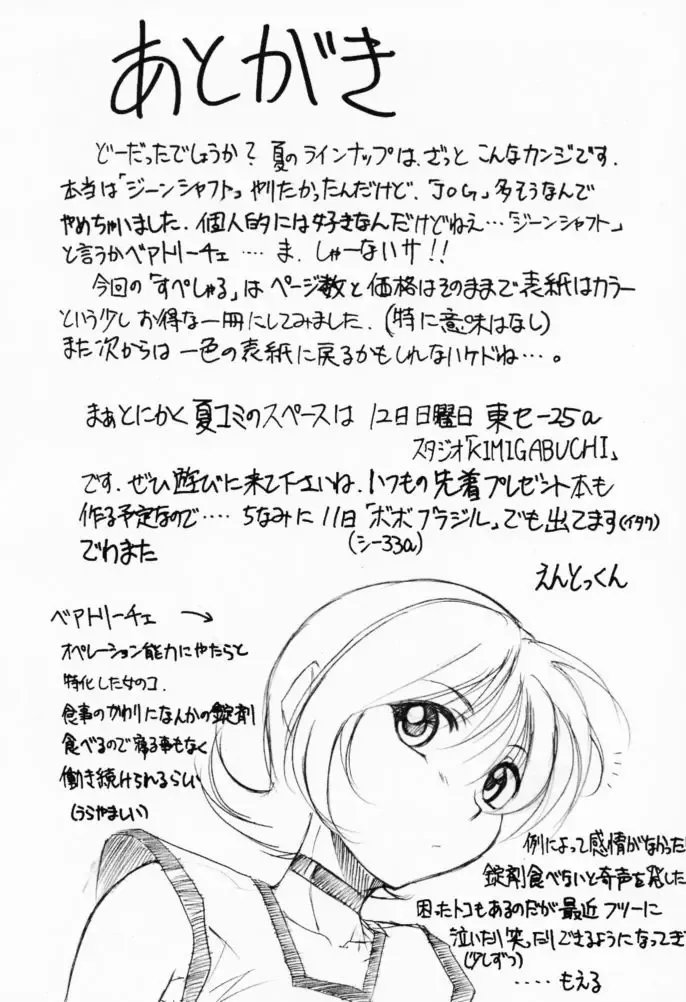 あとがき
どーだったでしょうか？夏のラインナップは、ざっと こんなカンジです.
本当は「ジーンシャフト」やりたかったんだけど、「JOG」多そうなんで
やめちゃいました. 個人的には好きなんだけどねえ…「ジーンシャフト」
と言うかベアトリーチェ …. ま、しゃーないサ!!
今回の「すぺしゃる」は ページ数と価格はそのままで表紙はカラー
という少し お得な一冊にしてみました. (特に意味はなし)
また次からは 一色の表紙に戻るかもしれないケドね…。
まぁとにかく 夏コミのスペースは 12日日曜日 東セー25a
スタジオ「KIMIGABUCHI」
です. ぜひ遊びに来て下さいね. いつもの先着プレゼント本も
作る予定なので…. ちなみに 11日「ボボブラジル」でも出てます(イタク)
(シー33a)
でわまた
えんとっくん
ベアトリーチェ →
オペレーション能力にやたらと
特化した女のコ.
食事のかわりになんかの錠剤
食べるので寝る事もなく
働き続けられるらしい
(うらやましい)
例によって感情がなかった
錠剤食べないと奇声を発した
困ったトコもあるのだが最近フツーに
泣いたり笑ったりできるようになってき
(少しずつ)
.... もえる